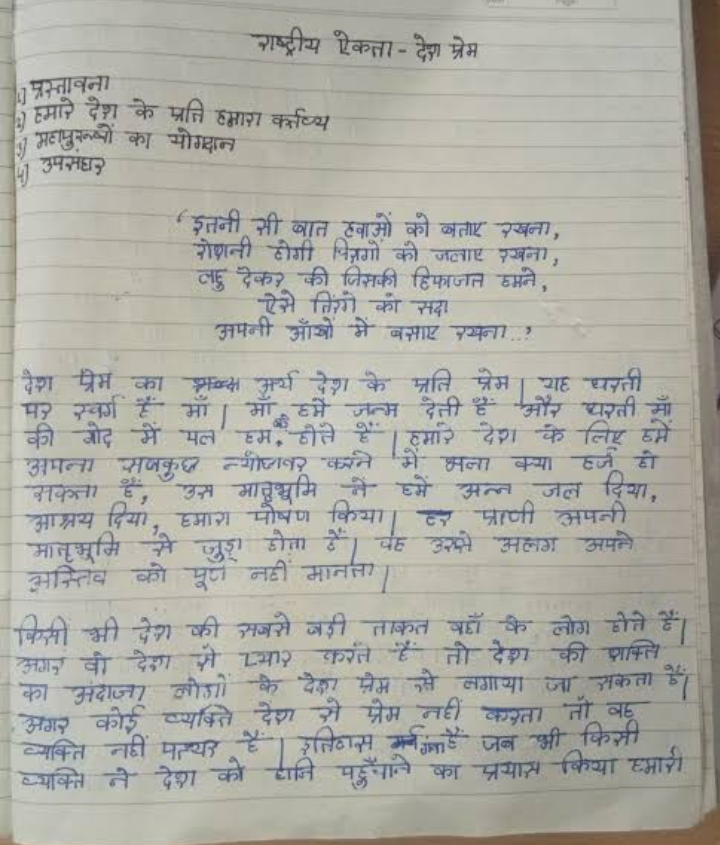 राष्ट्रीय ऐकता - देश प्रेम
1) प्रस्तावना
2) हमारे देश के प्रति हमारा कर्तव्य
3) महापुरूषों का योगदान
4) उपसंहार
‘इतनी सी बात हवाओं को बताए रखना,
रोशनी होगी चिरागों को जलाए रखना,
लहु देकर की जिसकी हिफाजत हमने,
ऐसे तिरंगे को सदा
अपनी आँखों में बसाए रखना..’
देश प्रेम का अर्थ देश के प्रति प्रेम। यह धरती
पर स्वर्ग हैं माँ। माँ हमें जन्म देती हैं और धरती माँ
की गोद में पल हम बड़े होते हैं। हमारे देश के लिए हमें
अपना सबकुछ न्योछावर करने में भला क्या हर्ज हो
सकता हैं, उस मातृभूमि ने हमें अन्न जल दिया,
आश्रय दिया, हमारा पोषण किया। हर प्राणी अपनी
मातृभूमि से जुड़ा होता हैं। वह उससे अलग अपने
अस्तिव को पूर्ण नहीं मानता।
किसी भी देश की सबसे बड़ी ताकत वहाँ के लोग होते हैं।
अगर वो देश से प्यार करते हैं तो देश की शक्ति
का अंदाजा लोगों के देश प्रेम से लगाया जा सकता हैं।
अगर कोई व्यक्ति देश से प्रेम नहीं करता तो वह
व्यक्ति नहीं पत्थर हैं। इतिहास गवाह हैं जब भी किसी
व्यक्ति ने देश को हानि पहुँचाने का प्रयास किया हमारे